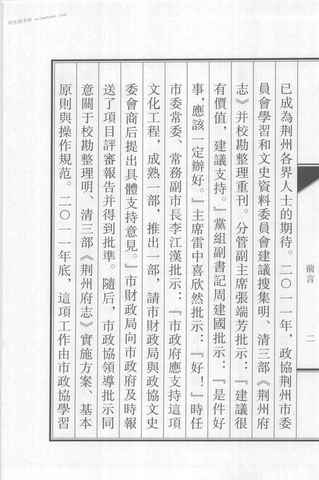 已成為荊州各界人士的期待。二〇一一年，政協荊州市委
員會學習和文史資料委員會建議搜集明、清三部《荊州府
志》并校勘整理重刊。分管副主席張端芳批示：『建議很
有價值，建議支持。』黨組副書記周建國批示：『是件好
事，應該一定辦好。』主席雷中喜欣然批示：『好！』時任
市委常委、常務副市長李江漢批示：『市政府應支持這項
文化工程，成熟一部，推出一部，請市財政局與政協文史
委會商后提出具體支持意見。』市財政局向市政府及時報
送了項目評審報告并得到批準。隨后，市政協領導批示同
意關于校勘整理明、清三部《荊州府志》實施方案、基本
原則與操作規范。二〇一一年底，這項工作由市政協學習
前言
二